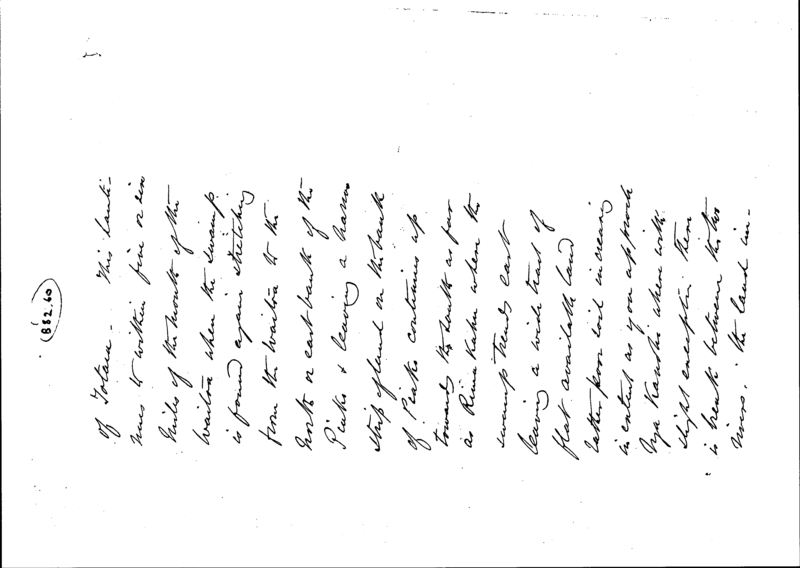 B32.60
of Totara. This conti-
nues to within five or six
miles of the mouth of the
Waitoa when the swamp
is found again stretching
from the Waitoa to the
north or east bank of the
Piako & leaving a narrow
strip of land on the bank
of Piako continues up
towards the south as far
as when the
swamp trends east
leaving a wide tract of
flat available land
rather poor soil increasing
in extent as you approach
Nga when with
slight exception there
is break between the two
rivers. The land in-